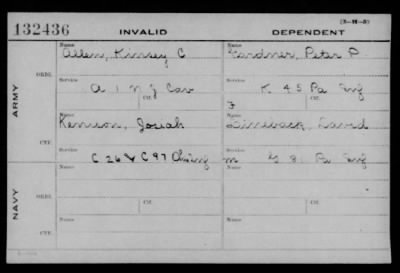 (3-H-5)
132436 INVALID DEPENDENT
Name Name
Allen, Kinsey C Gardner, Peter P
ORIG.
Service Service
A 1 N J Cav K 45 Pa Inf
Ctf. Ctf.
ARMY
Name
Kennison, Josiah Lineback, David
CTF.
Service Service
C 26 & C 97 Ohio Inf M G 81 Pa Inf
Name Ctf. Name Ctf.
ORIG.
NAVY
Name Name
CTF.